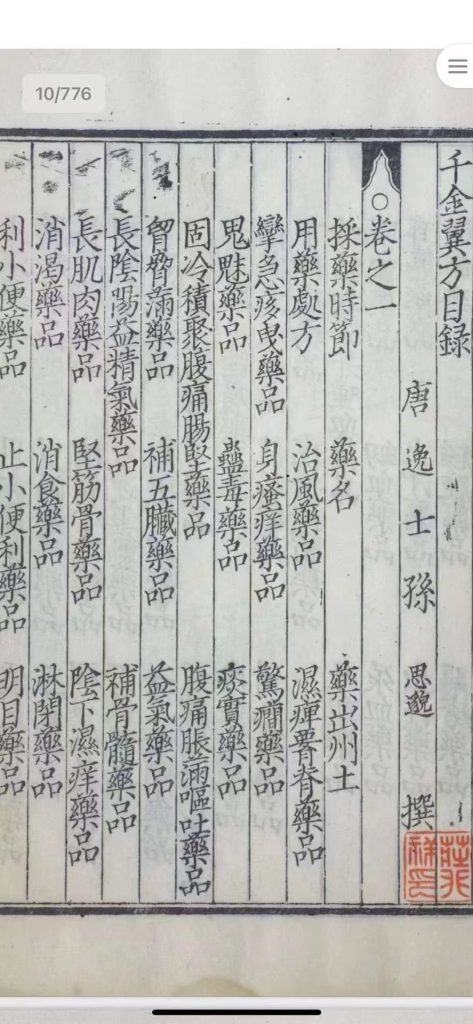 10/776
千金翼方目錄
唐逸士孫思邈撰
莊兆祥印
卷之一
採藥時節 藥名 藥出州土
用藥處方 治風藥品 濕痺腰脊藥品
攣急疼曳藥品 身瘙痒藥品 驚癇藥品
鬼魅藥品 蠱毒藥品 痰實藥品
固冷積聚腹痛腸堅藥品 腹痛脹滿嘔吐藥品
胷脅滿藥品 補五臟藥品 益氣藥品
長陰陽益精氣藥品 補骨髓藥品
長肌肉藥品 堅筋骨藥品 陰下濕痒藥品
消渴藥品 消食藥品 淋閉藥品
利小便藥品 止小便利藥品 明目藥品